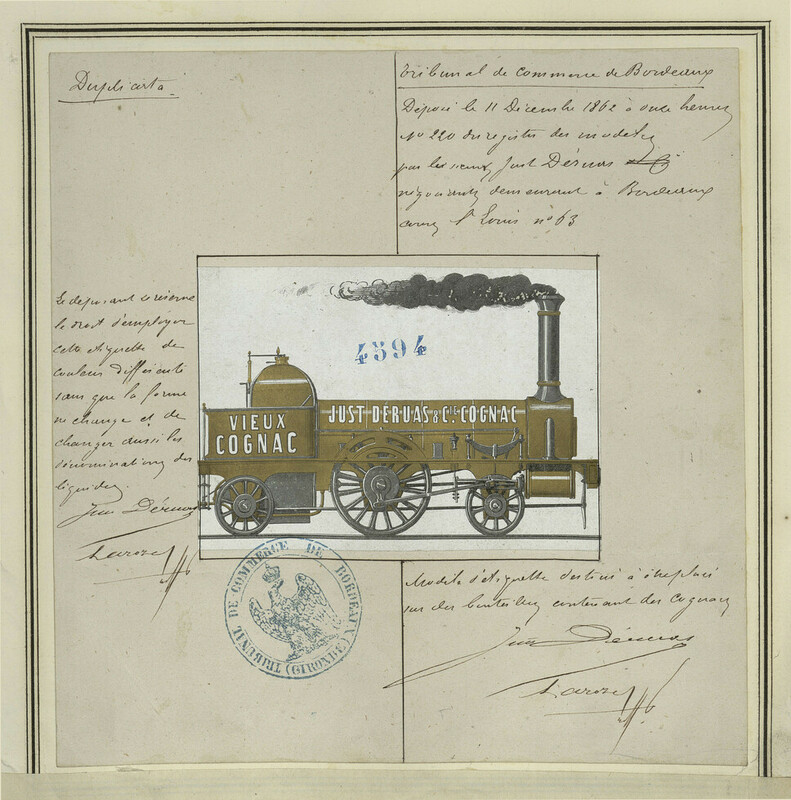 Duplicata
Tribunal de Commerce de Bordeaux
Déposé le 11 Décembre 1862 à onze heures
No 220 du registre des modèles
par les sieurs Just Déruas
négociants demeurant à Bordeaux
cours St Louis no 63
4594
VIEUX
COGNAC
JUST DÉRUAS & CIE. COGNAC
Le déposant se réserve
le droit d'employer
cette étiquette de
couleurs différentes
sans que la forme
ne change et de
changer aussi les
dénominations des
liquides
Just Déruas
TRIBUNAL DE COMMERCE DE BORDEAUX (GIRONDE)
Modèle d'étiquette destiné à être placé
sur des bouteilles contenant des Cognacs
Just Déruas